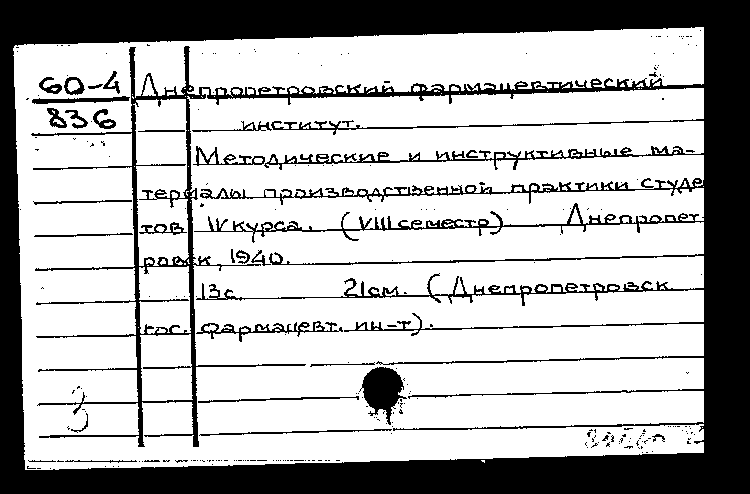 60-4 Днепропетровский фармацевтический
836 институт.
Методические и инструктивные ма-
териалы производственной практики студе
тов IV курса. (VIII семестр) Днепропет
ровск, 1940.
13с. 21см. (Днепропетровск
гос. фармацевт. ин-т).
3